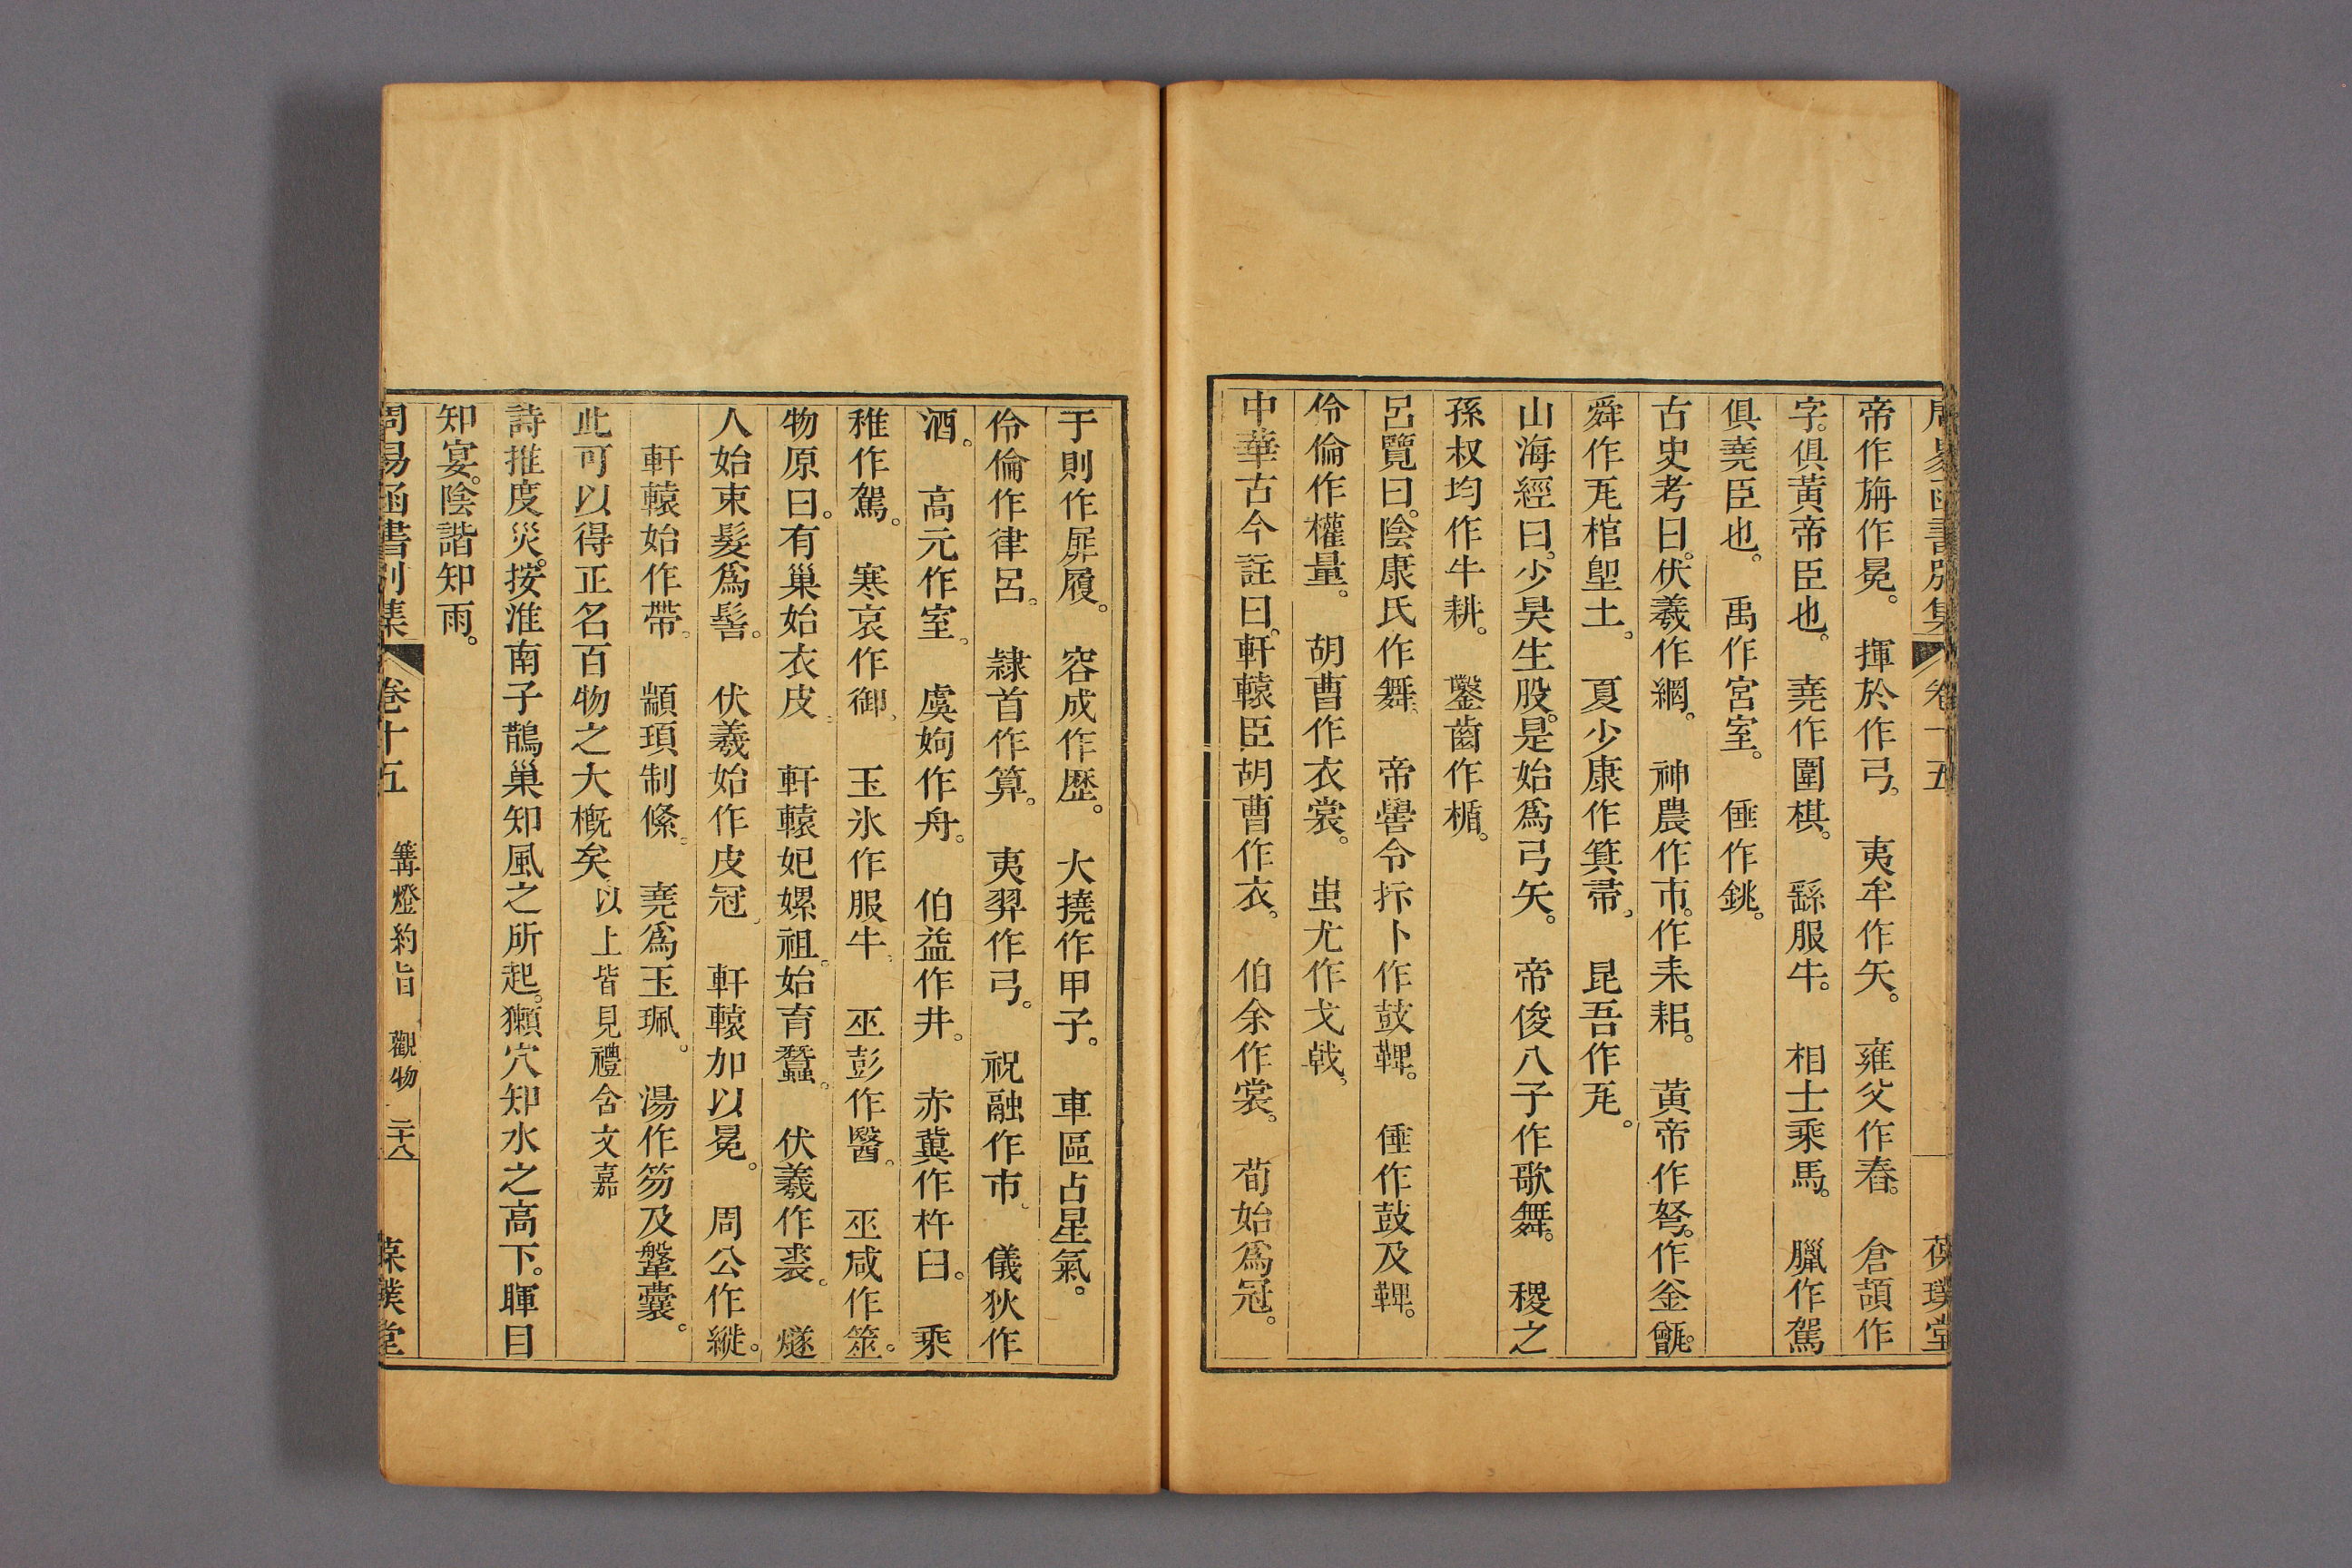 周易函書別集 卷十五 葆璞堂
帝作旃作冕。 揮於作弓。 夷牟作矢。 雍父作舂。 倉頡作
字。俱黃帝臣也。 堯作圍棋。 繇服牛。 相士乘馬。 臘作駕
俱堯臣也。 禹作宮室。 倕作銚。
古史考曰。伏羲作網。 神農作市。作耒耜。 黃帝作弩。作釜甑。
舜作瓦棺堲土。 夏少康作箕帚。 昆吾作瓦。
山海經曰。少昊生般。是始爲弓矢。 帝俊八子作歌舞。 稷之
孫叔均作牛耕。 鑿齒作楯。
呂覽曰。陰康氏作舞。 帝嚳令抃卜作鼓鞞。 倕作鼓及鞞。
伶倫作權量。 胡曹作衣裳。 蚩尤作戈戟。
中華古今註曰。軒轅臣胡曹作衣。 伯余作裳。 荀始爲冠。
于則作屝履。 容成作歷。 大撓作甲子。 車區占星氣。
伶倫作律呂。 隸首作算。 夷羿作弓。 祝融作市。 儀狄作
酒。 高元作室。 虞姁作舟。 伯益作井。 赤冀作杵臼。 乘
稚作駕。 寒哀作御。 王氷作服牛。 巫彭作醫。 巫咸作筮。
物原曰。有巢始衣皮。 軒轅妃嫘祖。始育蠶。 伏羲作裘。 燧
人始束髮爲髻。 伏羲始作皮冠。 軒轅加以冕。 周公作縰。
軒轅始作帶。 顓頊制絛。 堯爲玉珮。 湯作笏及鞶囊。
此可以得正名百物之大槪矣。以上皆見禮含文嘉
詩推度災。按淮南子鵲巢知風之所起。獺穴知水之高下。暉目
知宴。陰諧知雨。
周易函書別集 卷十五 篝燈約旨 觀物 二十八 葆璞堂